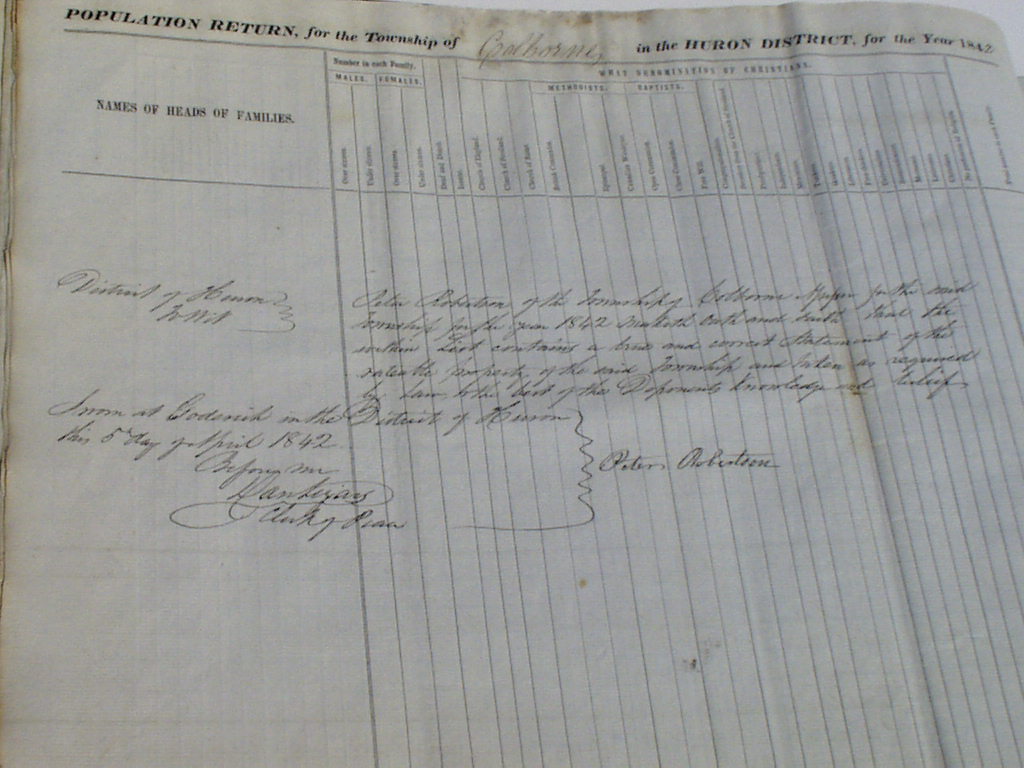 POPULATION RETURN, for the Township of Colborne in the HURON DISTRICT, for the Year 1842
NAMES OF HEADS OF FAMILIES.
Number in each Family.
MALES. FEMALES.
WHAT DENOMINATION OF CHRISTIANS.
METHODISTS. BAPTISTS.
Under sixteen.
Under sixteen.
Deaf and Dumb.
Church of England.
Church of Scotland.
Church of Rome.
Episcopal.
Canadian Wesleyan.
Open Communion.
Close Communion.
Free Will.
District of Huron
to Wit
Peter Robertson of the Township of Colborne Assessor for the said
Township for the year 1842 Maketh Oath and Saith that the
within List contains a true and correct Statement of the
rateable property of the said Township and taken as required
by Law to the best of the Deponents knowledge and belief
Sworn at Goderich in the District of Huron
this 5th day of April 1842
Before me
Dan Lizars
Clerk of Peace
Peter Robertson